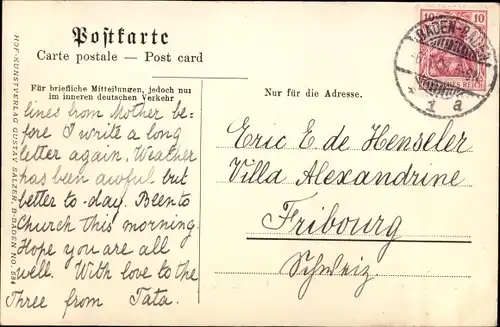 Postkarte
Carte postale — Post card
Für briefliche Mitteilungen, jedoch nur
im inneren deutschen Verkehr
Nur für die Adresse.
lines from Mother be-
fore I write a long
letter again. Weather
has been awful but
better to-day. Been to
Church this morning.
Hope you are all
well. With love to the
Three from Tata.
Eric E de Henseler
Villa Alexandrine
Fribourg
Schweiz.
10 10
BADEN-BADEN
1 a
HOF-KUNSTVERLAG GUSTAV SALZER, B-BADEN NO. 594